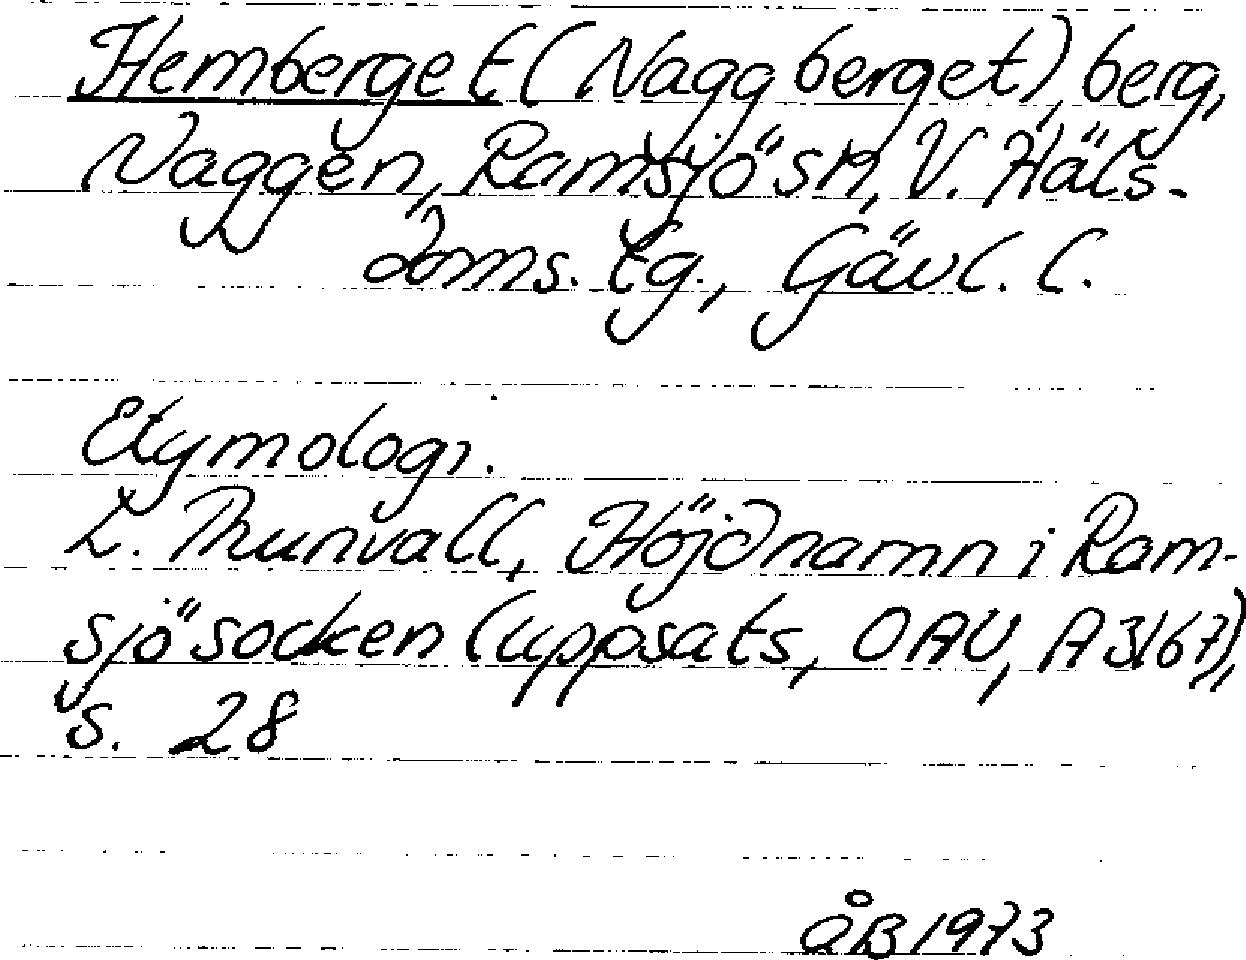 Hemberget (Naggberget), berg,
Naggen, Ramsjö sn, V. Häls.
doms. tg., Gävl. l.
Etymologi.
L. Thunvall, Höjdnamn i Ram-
sjö socken (uppsats, OAU, A 3167),
s. 28
ÅB 1973